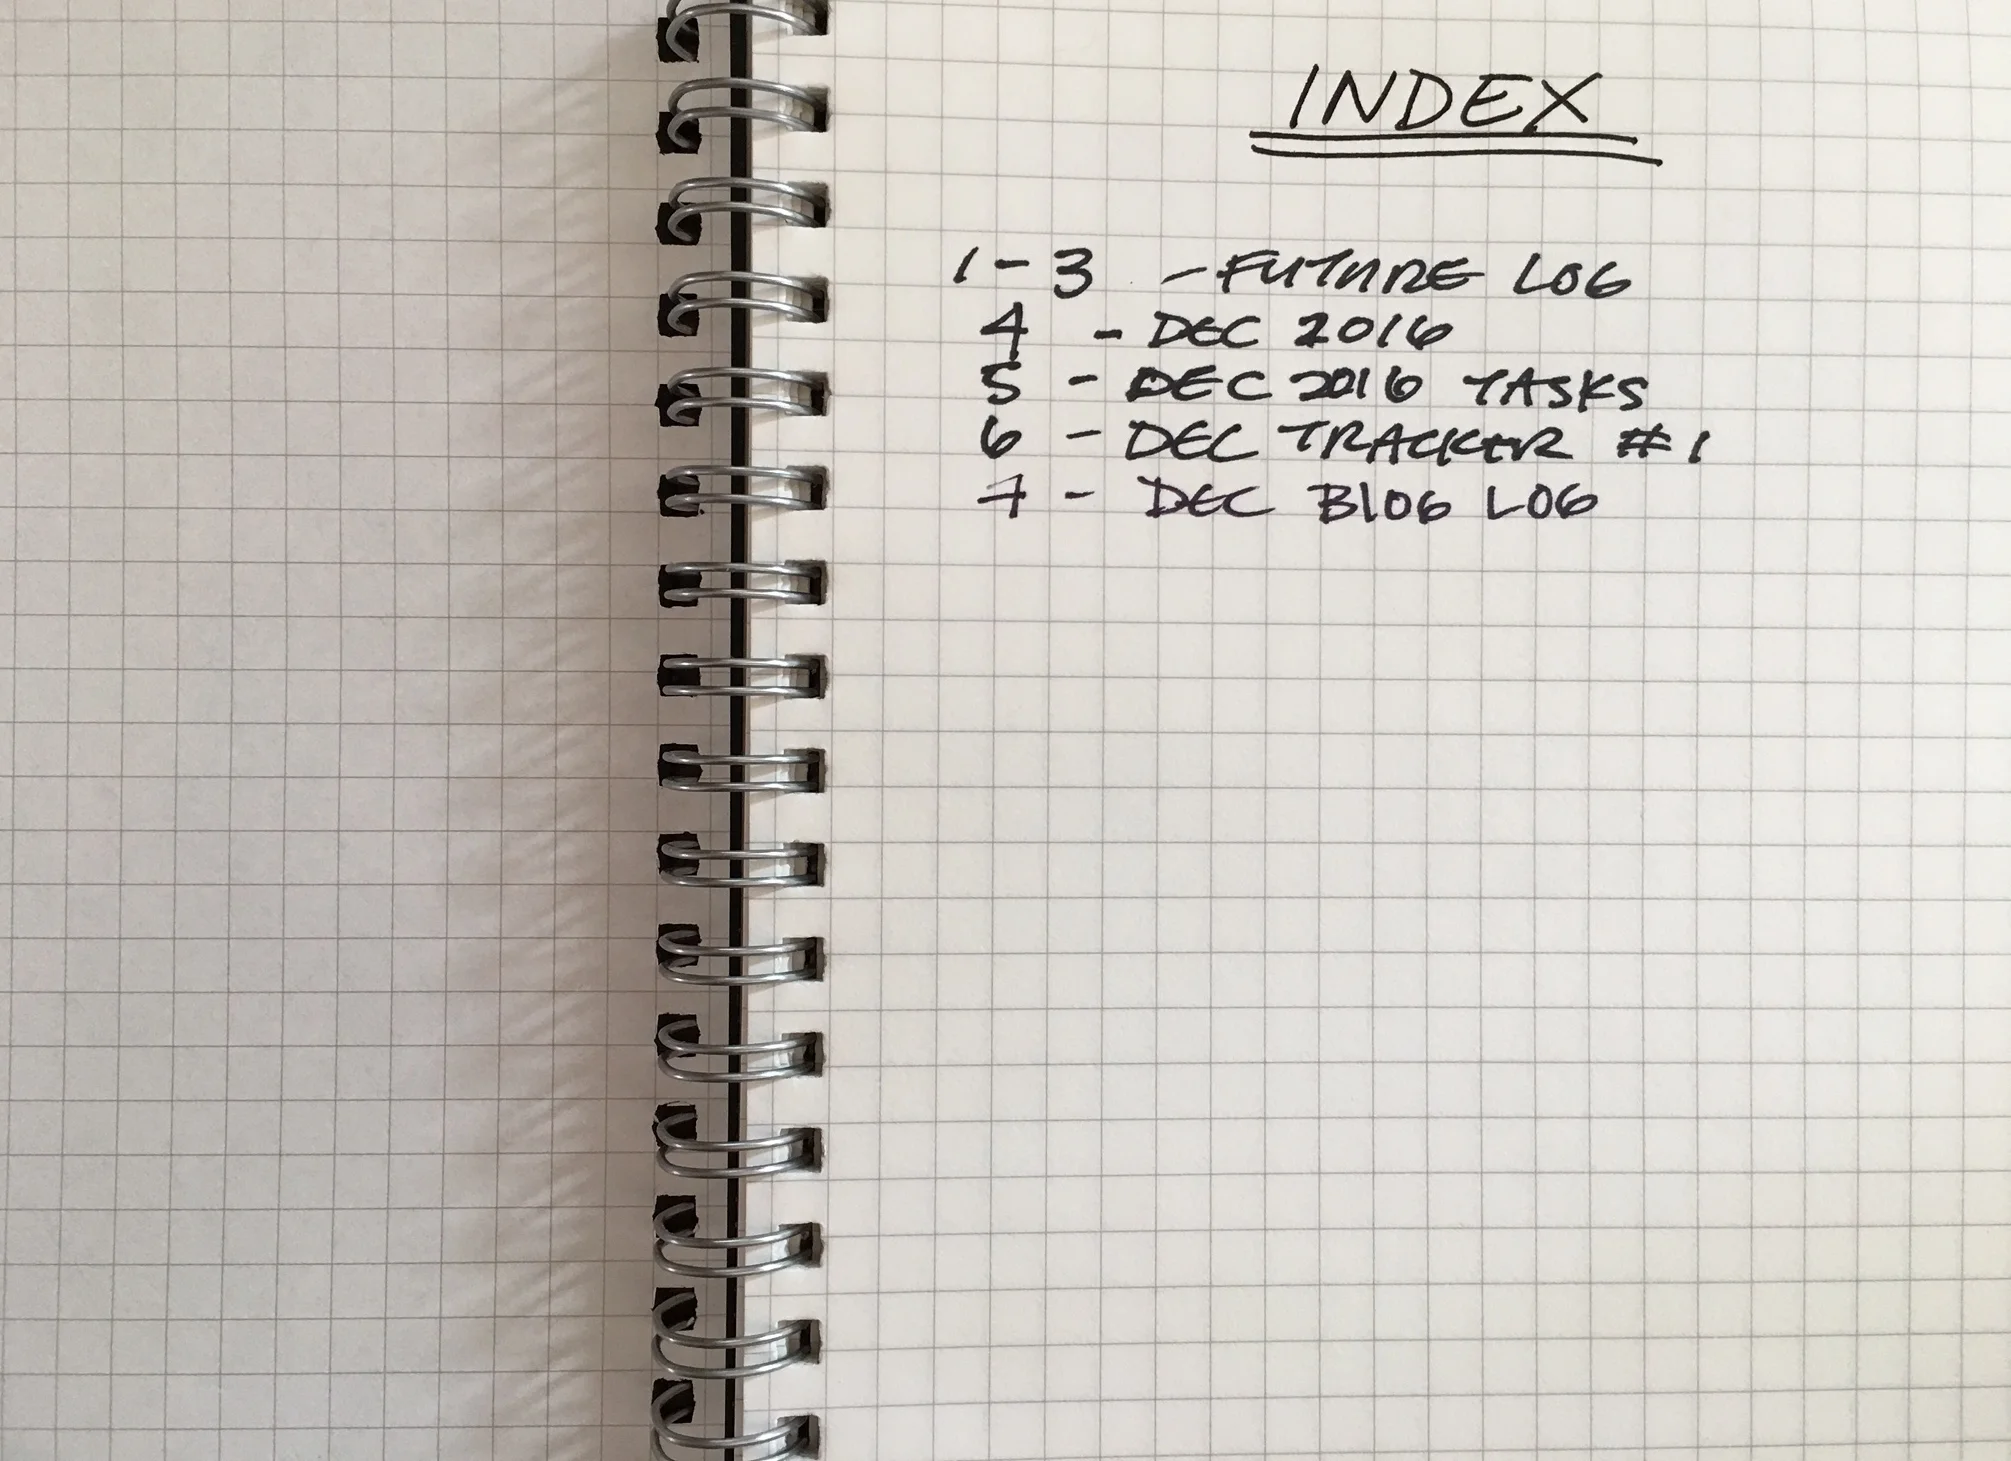 INDEX
1-3 - FUTURE LOG
4 - DEC 2016
5 - DEC 2016 TASKS
6 - DEC TRACKER #1
7 - DEC BLOG LOG